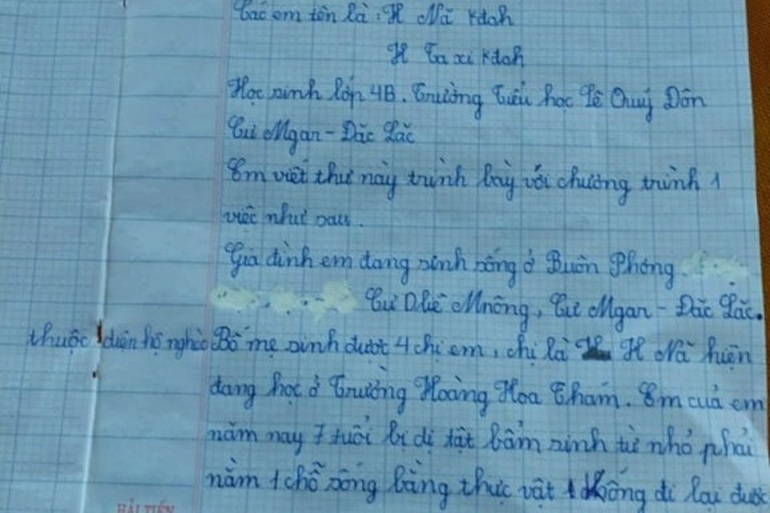 Các em tên là: H Nă Kđoh
H Ta xi Kđoh
Học sinh lớp 4B. Trường Tiểu học Lê Quý Đôn
Cư Mgar - Đăc Lăc
Em viết thư này trình bày với chương trình 1
việc như sau.
Gia đình em đang sinh sống ở Buôn Phóng.
Cư Dliê Mnông, Cư Mgar - Đăc Lăc.
thuộc diện hộ nghèo Bố mẹ sinh được 4 chị em, chị là H Nă hiện
đang học ở Trường Hoàng Hoa Thám. Em của em
năm nay 7 tuổi bị dị tật bẩm sinh từ nhỏ phải
nằm 1 chỗ sống bằng thực vật không đi lại được
HẢI TIẾN